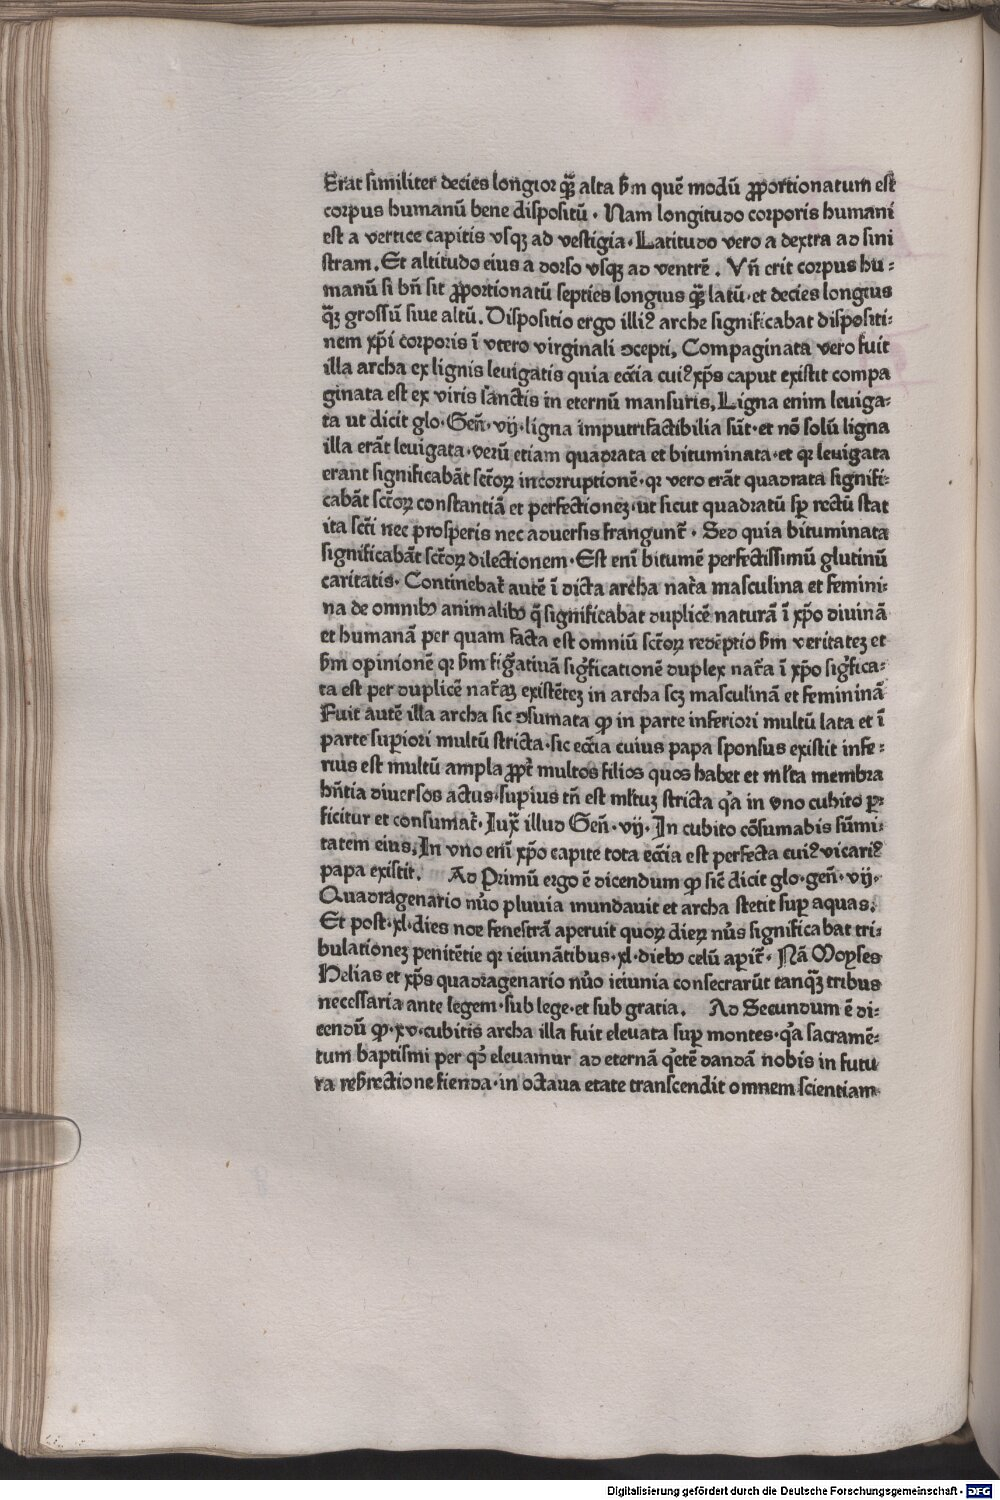 Erat similiter decies longior qꝫ̃ alta ẜm quẽ modũ ꝓportionatum est
corpus humanũ bene dispositũ · Nam longitudo corporis humani
est a vertice capitis vsqꝫ ad vestigia · Latitudo vero a dextra ad sini
stram. Et altitudo eius a dorso vsqꝫ ad ventrẽ. Vñ erit corpus hu⸗
manũ si bñ sit ꝓportionatũ septies longius qꝫ̃ latũ · et decies longius
qꝫ̃ grossũ siue altũ. Dispositio ergo illiꝰ arche significabat dispositi⸗
nem xp̃i corporis ĩ vtero virginali ꝯcepti, Compaginata vero fuit
illa archa ex lignis leuigatis quia ecc̃ia cuiꝰ xp̃s caput existit compa
ginata est ex viris sanctis in eternũ mansuris, Ligna enim leuiga⸗
ta ut dicit glo · Geñ · vij · ligna imputrifactibilia sũt · et nõ solũ ligna
illa erãt leuigata · verũ etiam quadrata et bituminata · et qr leuigata
erant significabãt sctoꝝ incorruptionẽ · qr vero erãt quadrata signifi⸗
cabãt sctoꝝ constantiã et perfectionez · ut sicut quadratũ sꝑ rectũ stat
ita scti nec prosperis nec aduersis frangunt᷑ · Sed quia bituminata
significabãt sctoꝝ dilectionem · Est eni bitumẽ perfectissimũ glutinũ
caritatis · Continebat᷑ autẽ ĩ dicta archa nat᷑a masculina et femini⸗
na de omnibꝰ animalibꝰ q̃ significabat duplicẽ naturã ĩ xp̃o diuinã
et humanã per quam facta est omniũ sctoꝝ redẽptio ẜm veritatez et
ẜm opinionẽ qr ẜm figatiuã sigficationẽ duplex nat᷑a ĩ xp̃o sigfica⸗
ta est per duplicẽ nat᷑aꝫ existẽtez in archa scꝫ masculinã et femininã
Fuit autẽ illa archa sic ꝯsumata ꝙ in parte inferiori multũ lata et ĩ
parte suꝑiori multũ stricta · sic ecc̃ia cuius papa sponsus existit infe⸗
rius est multũ ampla ꝓpt᷑ multos filios quos habet et ml̃ta membra
hñtia diuersos actus · suꝑius tñ est ml̃tuꝫ stricta qa in vno cubito ꝑ⸗
ficitur et consumat᷑ · Iux̃ illud Geñ · vij · In cubito cõsumabis sũmi⸗
tatem eius, In vno eni xp̃o capite tota ecc̃ia est perfecta cuiꝰ vicariꝰ
papa existit. Ad Primũ ergo ẽ dicendum ꝙ sic̃ dicit glo · geñ · vij ·
Quadragenario nuo pluuia inundauit et archa stetit suꝑ aquas.
Et post · xl · dies noe fenestrã aperuit quoꝝ dieꝝ nus significabat tri⸗
bulationez penitẽtie qr ieiunãtibus · xl · diebꝰ celũ apit᷑ · Nã Moyses
Helias et xp̃s quadragenario nuo ieiunia consecrarũt tanqꝫ̃ tribus
necessaria ante legem · sub lege · et sub gratia. Ad Secundum ẽ di⸗
cendũ ꝙ · xv · cubitis archa illa fuit eleuata suꝑ montes · qa sacramẽ⸗
tum baptismi per qd eleuamur ad eternã q̇etẽ dandã nobis in futu
ra reẜrectione fienda · in octaua etate transcendit omnem scientiam
Digitalisierung gefördert durch die Deutsche Forschungsgemeinschaft - DFG